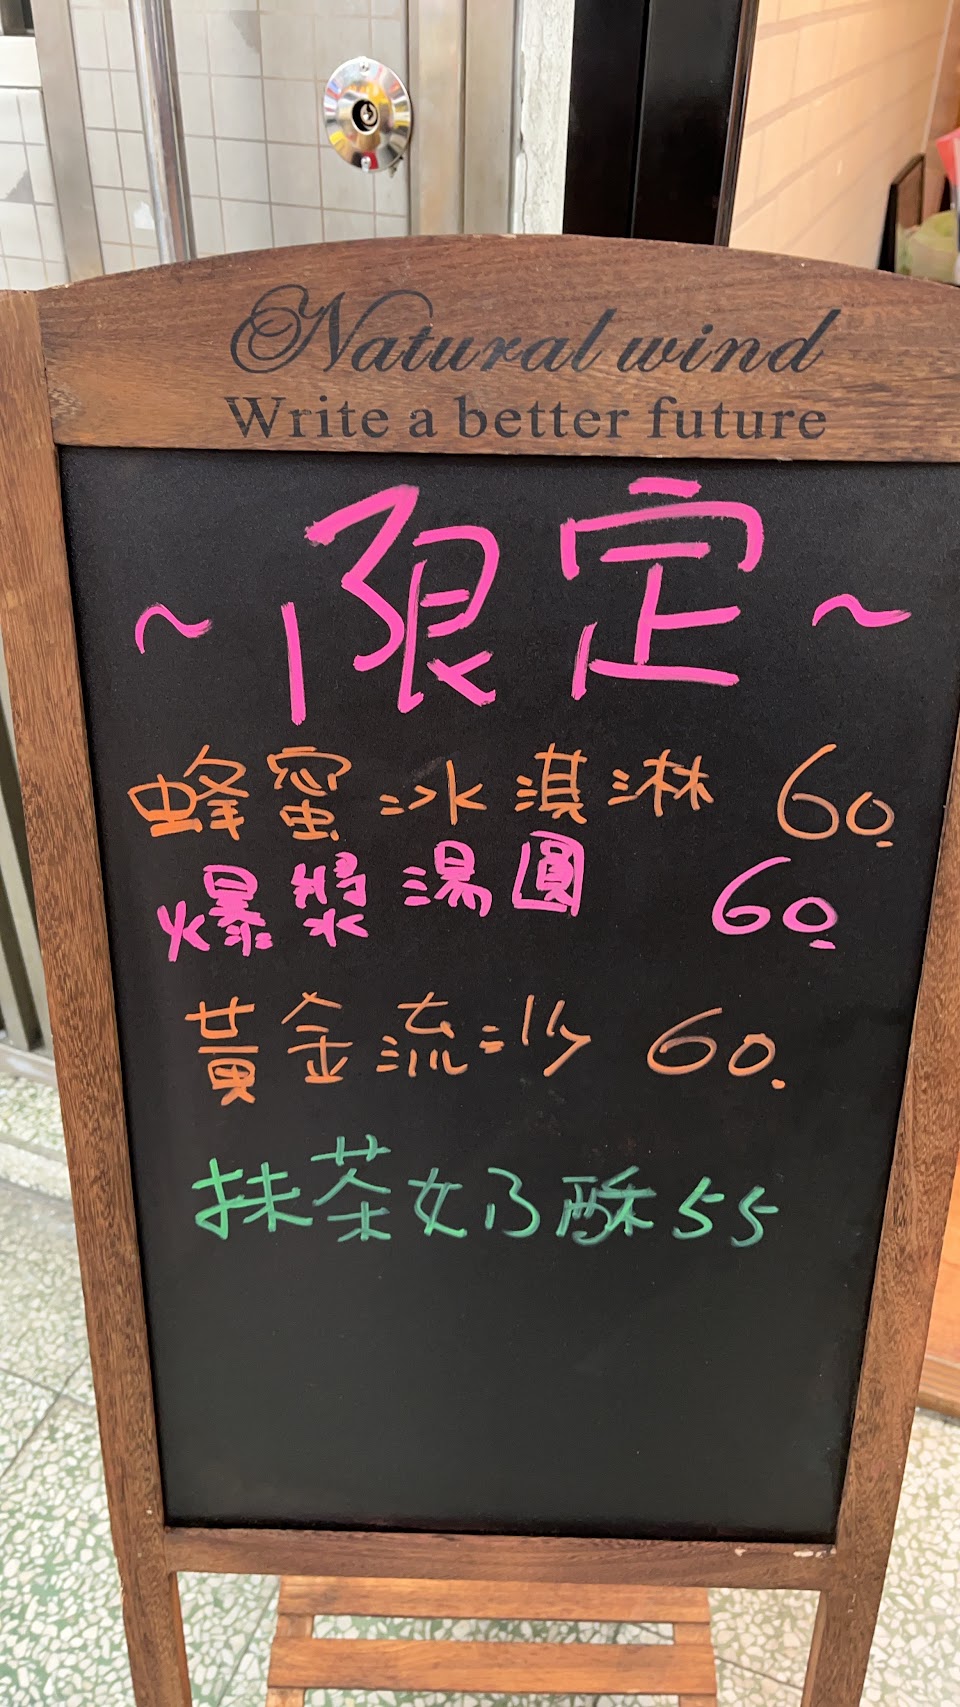 Natural wind
Write a better future
~限定~
蜂蜜冰淇淋 60
爆漿湯圓 60
黃金流沙 60.
抹茶奶酥 55